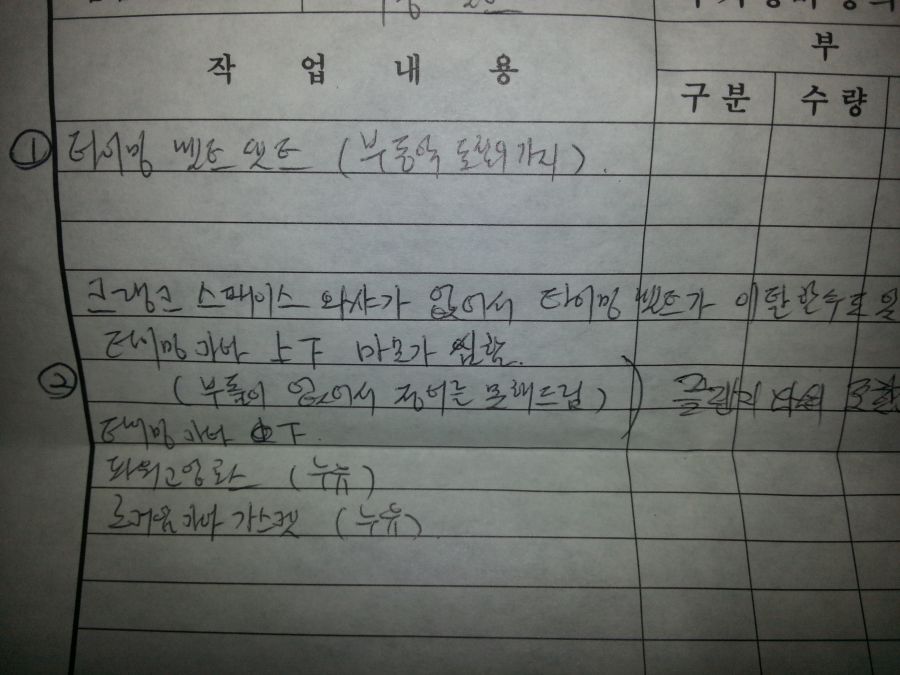 부
작 업 내 용
구분 수량
① 타이밍 벨트 셋트 (부동액 교환외 가지).
크랭크 스페이스 와샤가 없어서 타이밍 벨트가 이탈 할수도 있
타이밍 카바 上下 마모가 심함.
② (부품이 없어서 정비를 못해드림)
타이밍 카바 下.
파워고압호스 (누유)
로커암카바 가스켓 (누유)